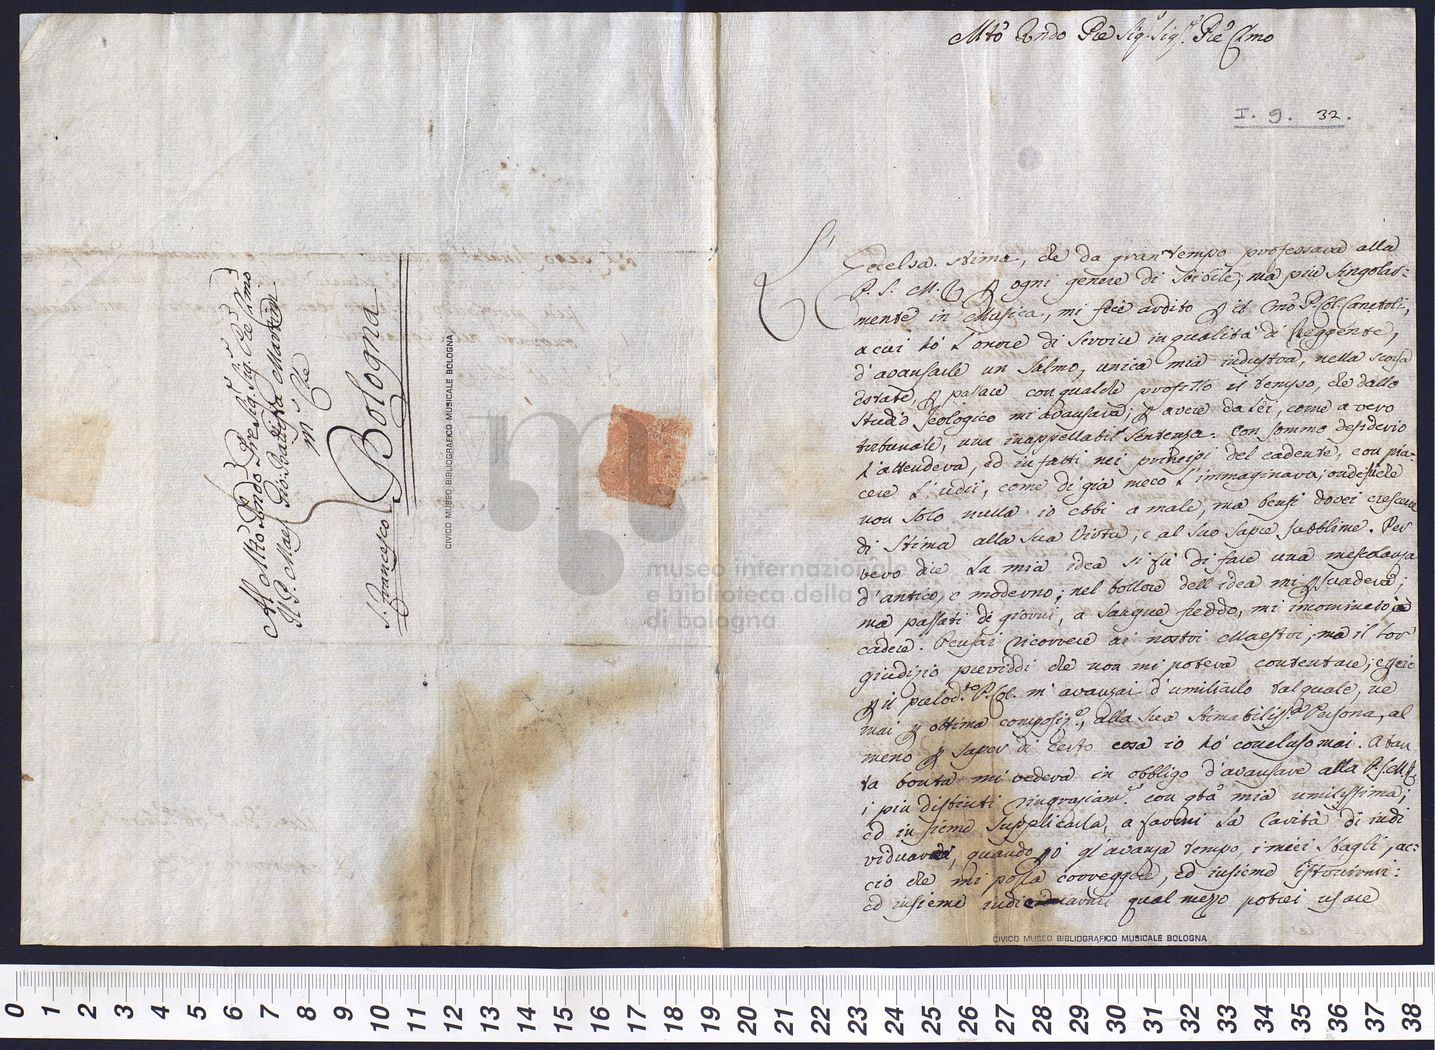 Al Mto Rndo Pre Sig. Sig. Pre Clmo
Il P. Maes. Giovanni Battista Martini
M. Cle
S. Francesco Bologna
CIVICO MUSEO BIBLIOGRAFICO MUSICALE BOLOGNA
museo internazionale
e biblioteca della
di bologna
Mto Rndo Pre Sig. Sig. Pre Clmo
I. 9. 32.
L'Eccelsa stima, che da gran tempo professava alla
P. S. M. R. ogni genere di scibile; ma più singolar-
mente in Musica, mi fece ardito il Cmo P. Col. Canetoli,
a cui hò l'onore di servire in qualità di Reggente,
d'avansarle un Salmo, unica mia industria, nella scorsa
estate, passare con qualche profitto il tempo, che dallo
studio Teologico mi avansava; avere da Lei, come a vero
tribunale, una inappellabil sentenza. Con sommo desiderio
l'attendeva, ed in fatti nei principi del cadente, con pia-
cere l'udii, come di già meco l'immaginava; ondeche
non solo nulla io ebbi a male, ma bensi dovei crescere
di stima alla sua Virtù, e al suo sapere subblime. Per
vero dire la mia idea si fù di fare una mescolansa
d'antico, e moderno; nel bollore dell'idea mi psuadeva;
ma passati di giorni, a sangue freddo, mi incominciò a
cadere. Pensai ricorrere ai nostri Maestri, ma il lor
giudizio previddi che non mi poteva contentare;
il prelod.to P. Col. m'avansai d'umiliarlo tal quale, ne
mai ottima composiz.e, alla sua stimabiliss.a Persona, al
meno saper di certo cosa io hò concluso mai. A tan
ta bontà mi vedeva in obbligo d'avansare alla P. S. M. R.
i più distinti ringrasiam.ti con qta mia umilissima;
ed insieme supplicarla, a farmi la Carità di indi
viduarmi, quando gl'avansa tempo, i miei sbagli, ac-
cio che mi possa correggere, ed insieme istruirmi:
ed insieme qual mezzo potrei usare
CIVICO MUSEO BIBLIOGRAFICO MUSICALE BOLOGNA
0 1 2 3 4 5 6 7 8 9 10 11 12 13 14 15 16 17 18 19 20 21 22 23 24 25 26 27 28 29 30 31 32 33 34 35 36 37 38